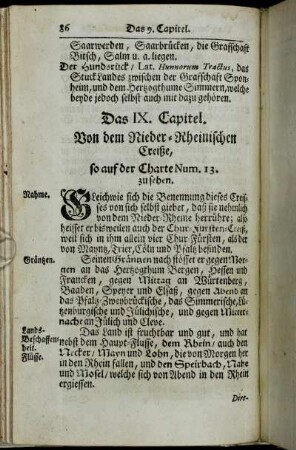 86 Das 9. Capitel.
Saarwerden, Saarbrücken, die Graffschafft
Bitsch, Salm u. a. liegen.
Der Hundsrück/ Lat. Hunnorum Tractus, das
Stuck Landes zwischen der Graffschafft Spon-
heim, und dem Hertzogthume Simmern, welche
beyde jedoch selbst auch mit dazu gehören.
Das IX. Capitel.
Von dem Nieder-Rheinischen
Creiße,
so auf der Charte Num. 13.
zu sehen.
Nahme.
GLeichwie sich die Benennung dieses Creis-
ses von sich selbst giebet, daß sie nehmlich
von dem Nieder-Rheine herrühre; also
heisset er bisweilen auch der Chur-Fürsten-Creiß,
weil sich in ihm allein vier Chur Fürsten, als der
von Mayntz, Trier, Cöln und Pfaltz befinden.
Gräntzen.
Seinen Gräntzen nach stösset er gegen Mor-
gen an das Hertzogthum Bergen, Hessen und
Francken, gegen Mittag an Würtenberg,
Baaden, Speyer und Elsaß, gegen Abend an
das Pfaltz-Zweybrückische, das Simmerische, Lü-
tzenburgische und Jülichische, und gegen Mitter-
nacht an Jülich und Cleve.
Lands-
Beschaffen-
heit.
Flüsse.
Das Land ist fruchtbar und gut, und hat
nebst dem Haupt-Flusse, dem Rhein/ auch den
Necker/ Mayn und Lohn, die von Morgen her
in den Rhein fallen, und den Speirbach, Nahe
und Mosel/ welche sich von Abend in den Rhein
ergiessen.
Dire-